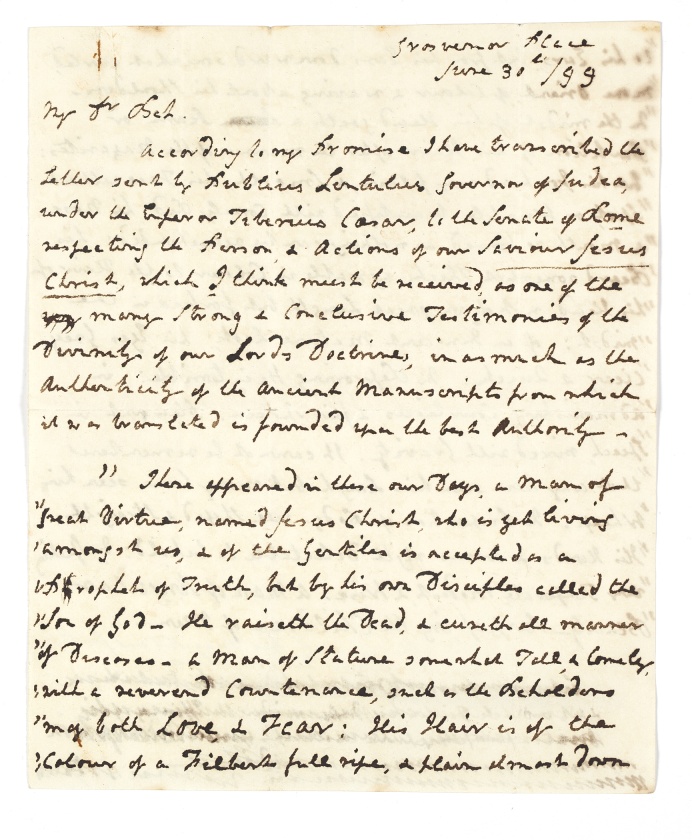 Grosvernor Place
June 30th/99
My Dr
According to my Promise I have transcribed the
Letter sent by Publius Lentulus Governor of Judea,
under the Emperor Tiberius Cæsar, to the Senate of Rome
respecting the Person, & Actions of our Saviour Jesus
Christ, which I think must be received, as one of the
many Strong & Conclusive Testimonies of the
Divinity of our Lords Doctrine, in as much as the
Authenticity of the Ancient Manuscripts from which
it was translated is founded upon the best Authority -
" There appeared in these our Days, a Man of
"great Virtue, named Jesus Christ, who is yet living
"amongst us, & of the Gentiles is accepted as a
"Prophet of Truth, but by his own Disciples called the
"Son of God - He raiseth the Dead, & cureth all manner
"of Diseases - a Man of Stature somewhat Tall, & Comely,
"with a reverend Countenance, such as the Beholders
"may both Love & Fear: His Hair is of the
"Colour of a Filbert full ripe, & plain almost down